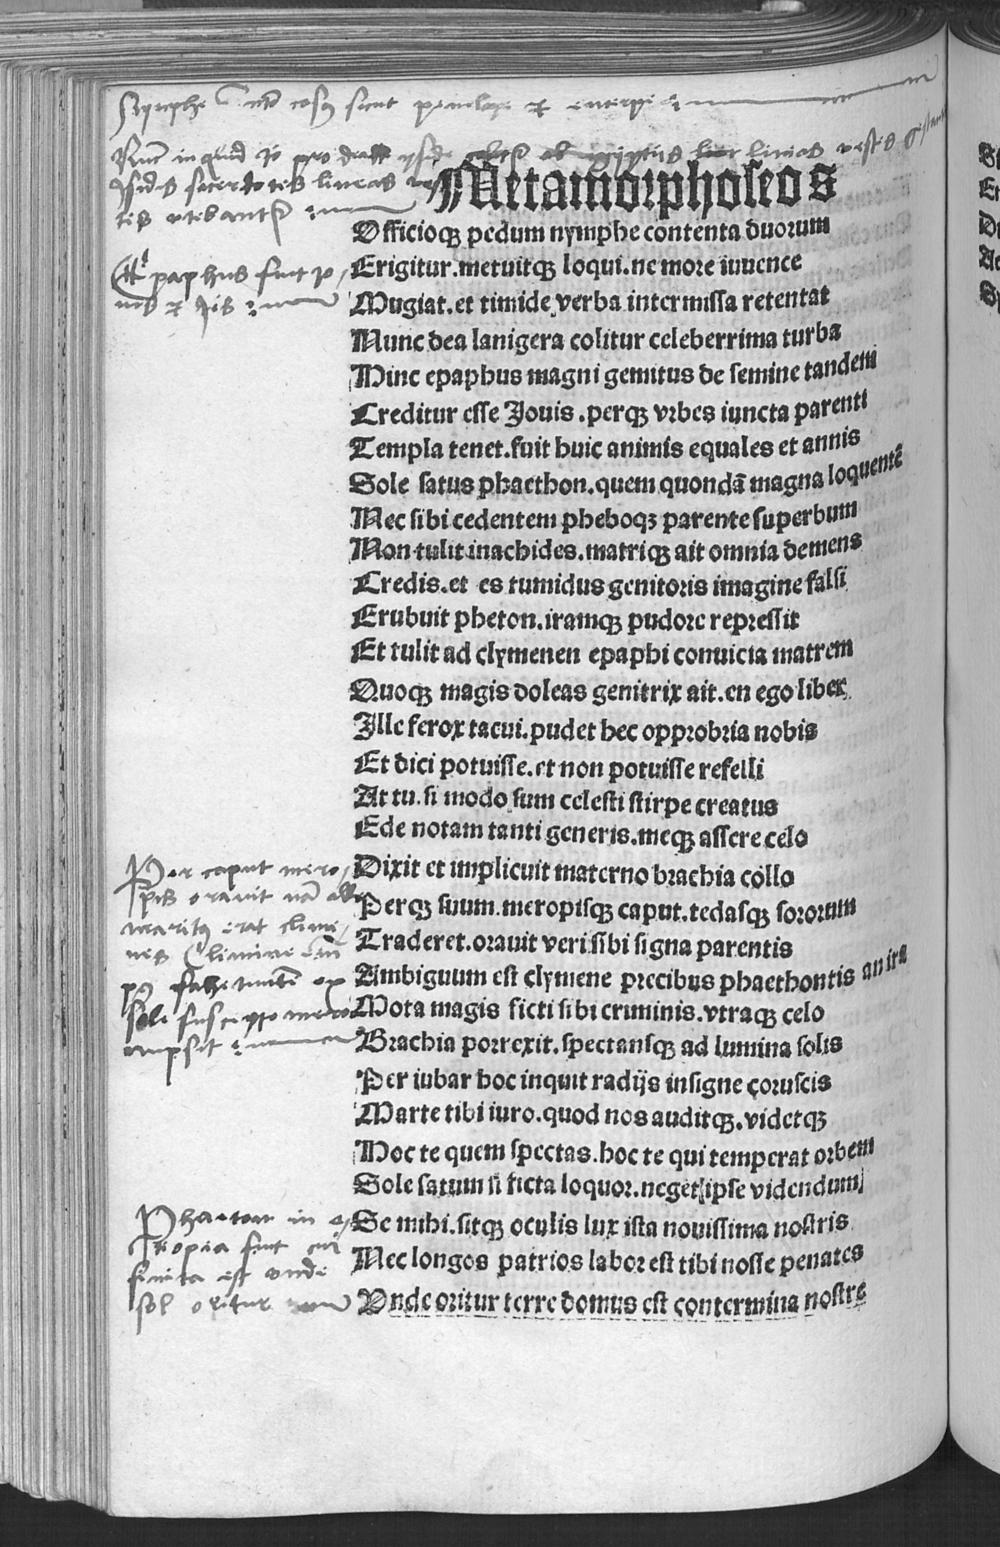 Nymphe
Isidis sacerdotes lineas ves
tes utebantur
Epaphus fuit Jo
uis et Jsis
Metamorphoseos
Officioq₃ pedum nymphe contenta duorum
Erigitur.metuitq₃ loqui.ne more iuuence
Mugiat.et timide verba intermissa retentat
Nunc dea lanigera colitur celeberrima turba
Hinc epaphus magni genitus de semine tandem
Creditur esse Jouis.perq₃ vrbes iuncta parenti
Templa tenet.fuit huic animis equales et annis
Sole satus phaethon.quem quondā magna loquentē
Nec sibi cedentem pheboq₃ parente superbum
Non tulit inachides.matriq₃ ait omnia demens
Credis.et es tumidus genitoris imagine falsi
Erubuit pheton.iramq₃ pudore repressit
Et tulit ad clymenen epaphi conuicia matrem
Quoq₃ magis doleas genitrix ait.en ego liber
Ille ferox tacui.pudet hec opprobria nobis
Et dici potuisse.et non potuisse refelli
At tu.si modo sum celesti stirpe creatus
Ede notam tanti generis.meq₃ assere celo
Dixit et implicuit materno brachia collo
Perq₃ suum.meropisq₃ caput.tedasq₃ sororum
Traderet.orauit veri sibi signa parentis
Ambiguum est clymene precibus phaethontis an ira
Mota magis ficti sibi criminis.vtraq₃ celo
Brachia porrexit.spectansq₃ ad lumina solis
Per iubar hoc inquit radijs insigne coruscis
Marte tibi iuro.quod nos auditq₃.videtq₃
Hoc te quem spectas.hoc te qui temperat orbem
Sole satum si ficta loquor.neget ipse videndum
Se mihi.sitq₃ oculis lux ista nouissima nostris
Nec longos patrios labor est tibi nosse penates
Vnde oritur terre domus est contermina nostre
Per caput mero
pis orauit
maritus erat clime
nes
sole suscepto
nupsit
Phaeton in e
tiopia fuit
finita est vnde
sol oritur